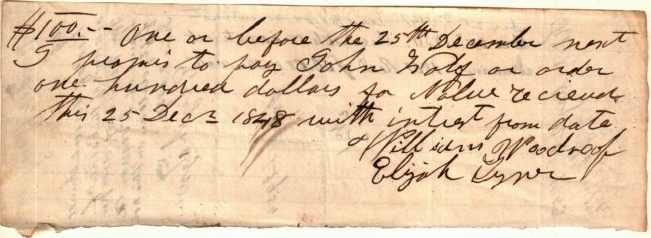 $100.-- One or before the 25th December next
I promis to pay John Wolf or order
one hundred dollars for Value recieved
this 25 Decr 1848 with intrest from date
William Woodroof
Elijah